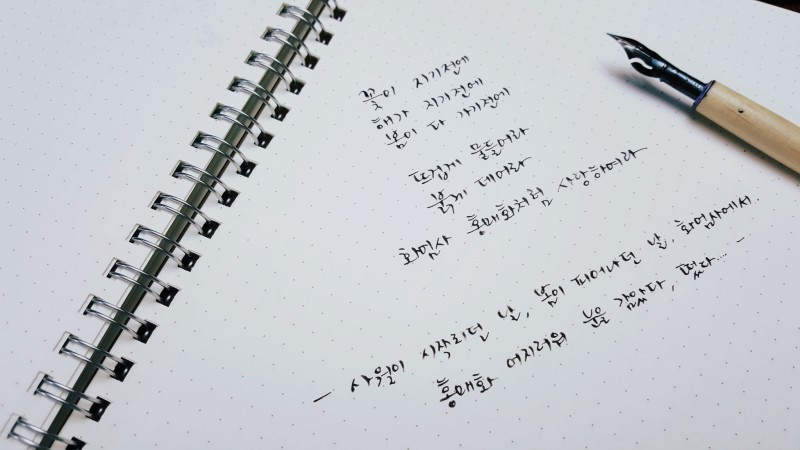 꽃이 지기전에
해가 지기전에
봄이 다 가기전에
뜨겁게 물들어라
붉게 데어라
화엄사 홍매화처럼 사랑하여라
- 사월이 시작되던 날, 봄이 피어나던 날, 화엄사에서.
홍매화 어지러워 눈을 감았다, 떴다... -